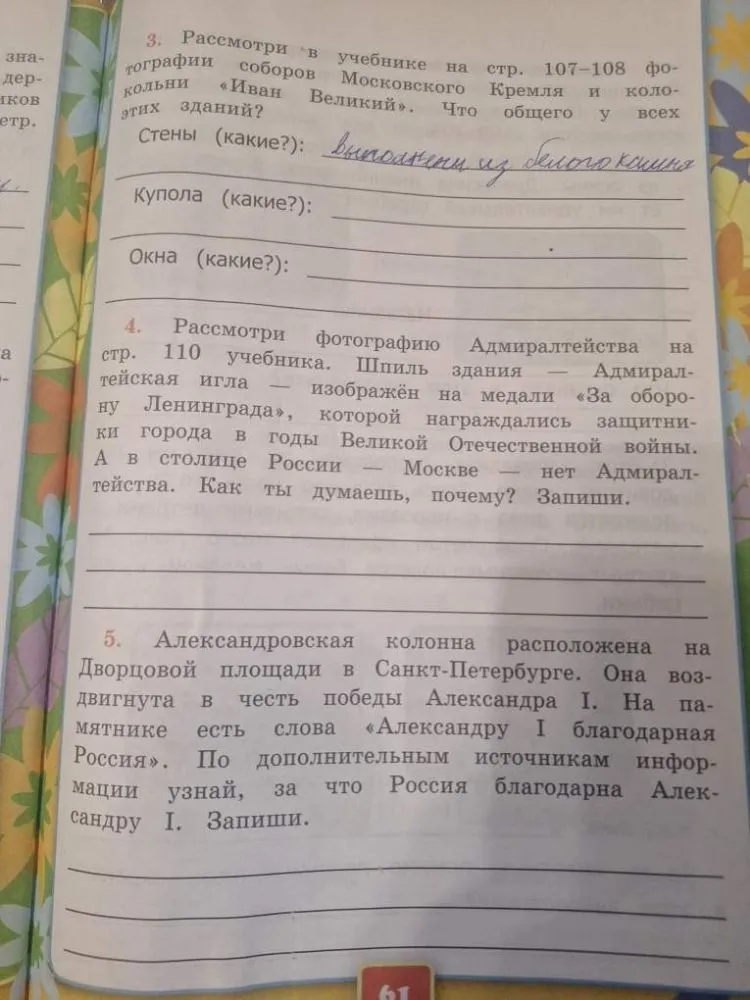 зна-
дер-
иков
етр.
3. Рассмотри в учебнике на стр. 107–108 фо-
тографии соборов Московского Кремля и коло-
кольни «Иван Великий». Что общего у всех
этих зданий?
Стены (какие?): выполнены из белого камня
Купола (какие?):
Окна (какие?):
4. Рассмотри фотографию Адмиралтейства на
стр. 110 учебника. Шпиль здания — Адмирал-
тейская игла — изображён на медали «За оборо-
ну Ленинграда», которой награждались защитни-
ки города в годы Великой Отечественной войны.
А в столице России — Москве — нет Адмирал-
тейства. Как ты думаешь, почему? Запиши.
5. Александровская колонна расположена на
Дворцовой площади в Санкт-Петербурге. Она воз-
двигнута в честь победы Александра I. На па-
мятнике есть слова «Александру I благодарная
Россия». По дополнительным источникам инфор-
мации узнай, за что Россия благодарна Алек-
сандру I. Запиши.
61